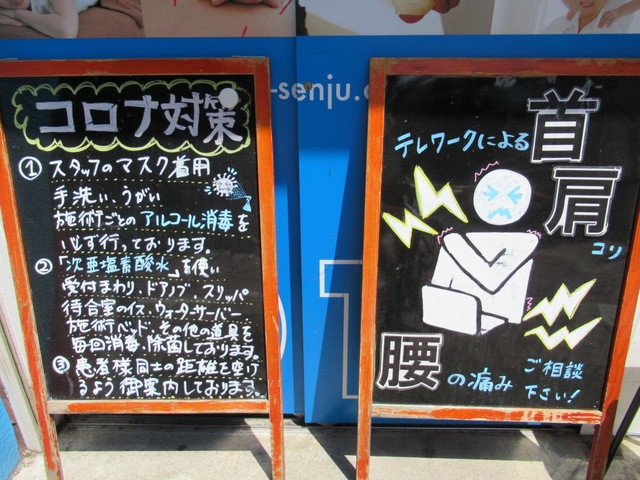 -senju.c
コロナ対策
① スタッフのマスク着用
手洗い、うがい
施術ごとのアルコール消毒を
必ず行っております。
②「次亜塩素酸水」を使い
受付まわり、ドアノブ スリッパ
待合室のイス、ウォーターサーバー
施術ベッド、その他の道具を
毎回消毒、除菌しております。
③ 患者様同士の距離を空け
るよう御案内しております。
テレワークによる
首
肩
コリ
腰の痛み
ご相談
下さい!